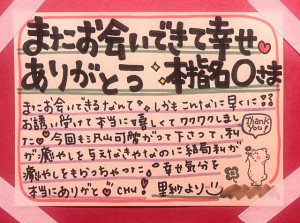 またお会いできて幸せ♥
ありがとう 本指名〇さま
またお会いできるなんて しかもこんなに早くに!!
お誘い受けて本当に嬉しくてワクワクしまし
た♥ 今回も沢山可愛がって下さって、私
が癒やしを与えなきゃなのに結局私が
癒やしをもらっちゃった 幸せ気分を
本当にありがと♡CHU! 里紗より
Thank You!